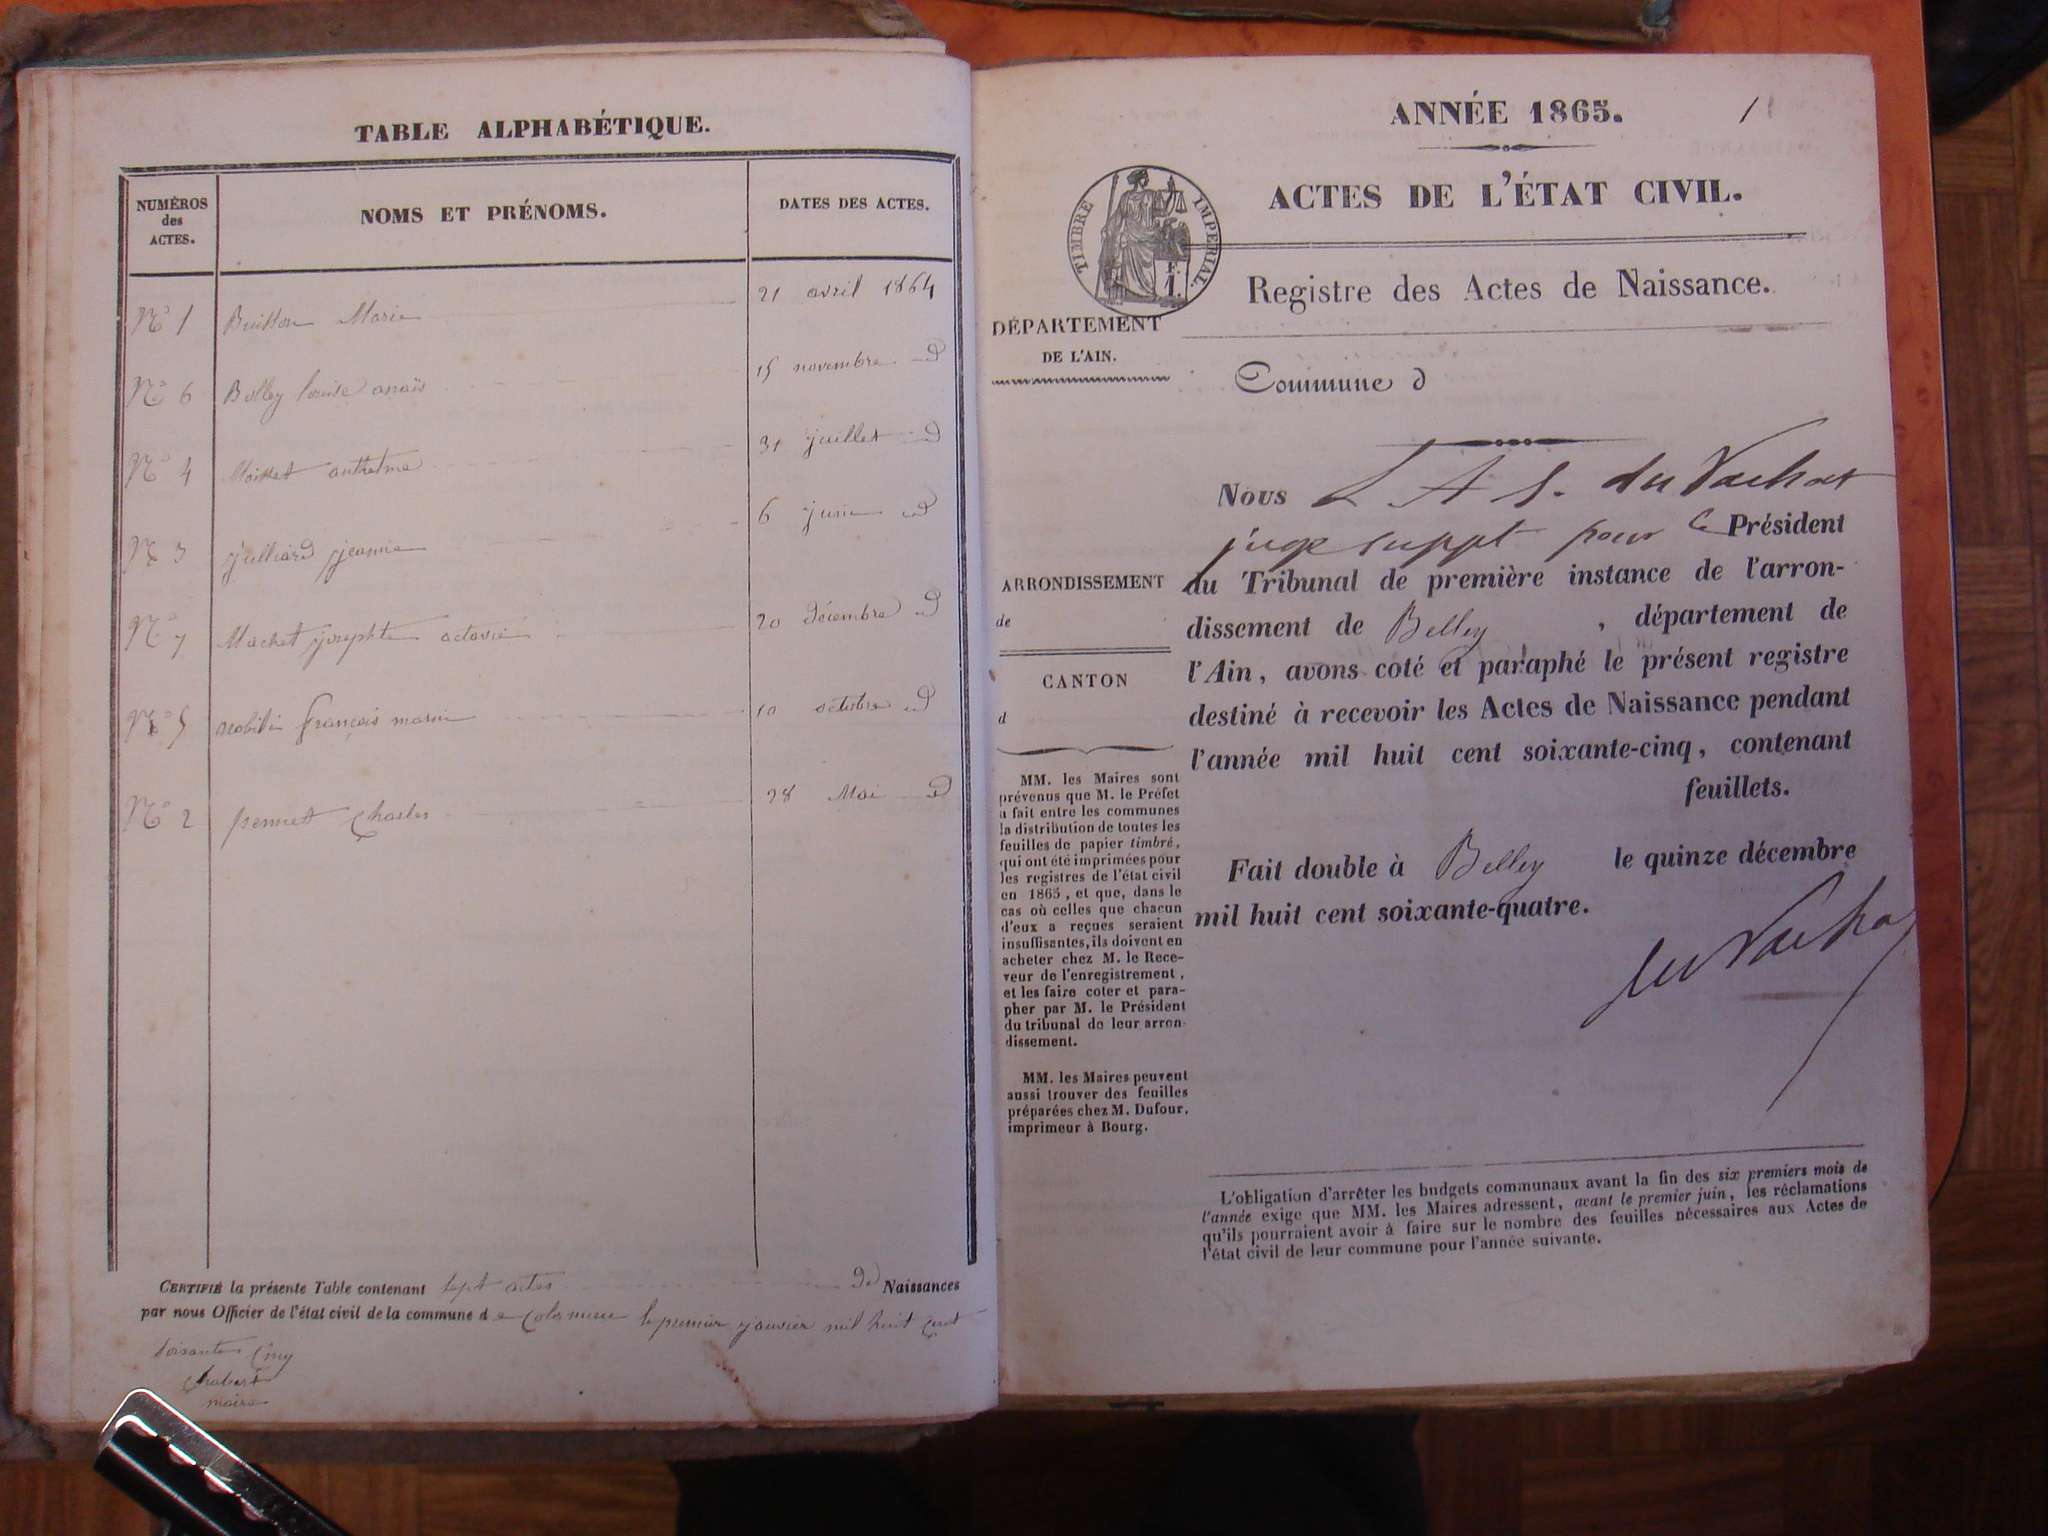 TABLE ALPHABÉTIQUE.
NUMÉROS
des
ACTES.
NOMS ET PRÉNOMS.
DATES DES ACTES.
No 1 Marie 21 avril 1864
No 6 Bolley louise anaïs 15 novembre d
No 4 anthelme 31 juillet d
No 3 julliard jeanne 6 juin d
No 7 Machet josephte octavie 20 décembre d
No 5 françois marin 10 octobre d
No 2 pennet Charles 28 Mai d
CERTIFIÉ la présente Table contenant sept actes de Naissances
par nous Officier de l'état civil de la commune d e Colomieu le premier janvier mil huit Cent
soixante Cinq
maire
ANNÉE 1865.
1
ACTES DE L'ÉTAT CIVIL.
TIMBRE IMPERIAL.
F.
1.
Registre des Actes de Naissance.
DÉPARTEMENT
DE L'AIN.
Commune d
ARRONDISSEMENT
de
CANTON
d
MM. les Maires sont
prévenus que M. le Préfet
a fait entre les communes
la distribution de toutes les
feuilles de papier timbré,
qui ont été imprimées pour
les registres de l'état civil
en 1865, et que, dans le
cas où celles que chacun
d'eux a reçues seraient
insuffisantes, ils doivent en
acheter chez M. le Rece-
veur de l'enregistrement,
et les faire coter et para-
pher par M. le Président
du tribunal de leur arron-
dissement.
MM. les Maires peuvent
aussi trouver des feuilles
préparées chez M. Dufour,
imprimeur à Bourg.
Nous L A S. du Vachat
juge suppt pour le Président
du Tribunal de première instance de l'arron-
dissement de Belley , département de
l'Ain, avons coté et paraphé le présent registre
destiné à recevoir les Actes de Naissance pendant
l'année mil huit cent soixante-cinq, contenant
feuillets.
Fait double à Belley le quinze décembre
mil huit cent soixante-quatre.
du Vacha
L'obligation d'arrêter les budgets communaux avant la fin des six premiers mois de
l'année exige que MM. les Maires adressent, avant le premier juin, les réclamations
qu'ils pourraient avoir à faire sur le nombre des feuilles nécessaires aux Actes de
l'état civil de leur commune pour l'année suivante.